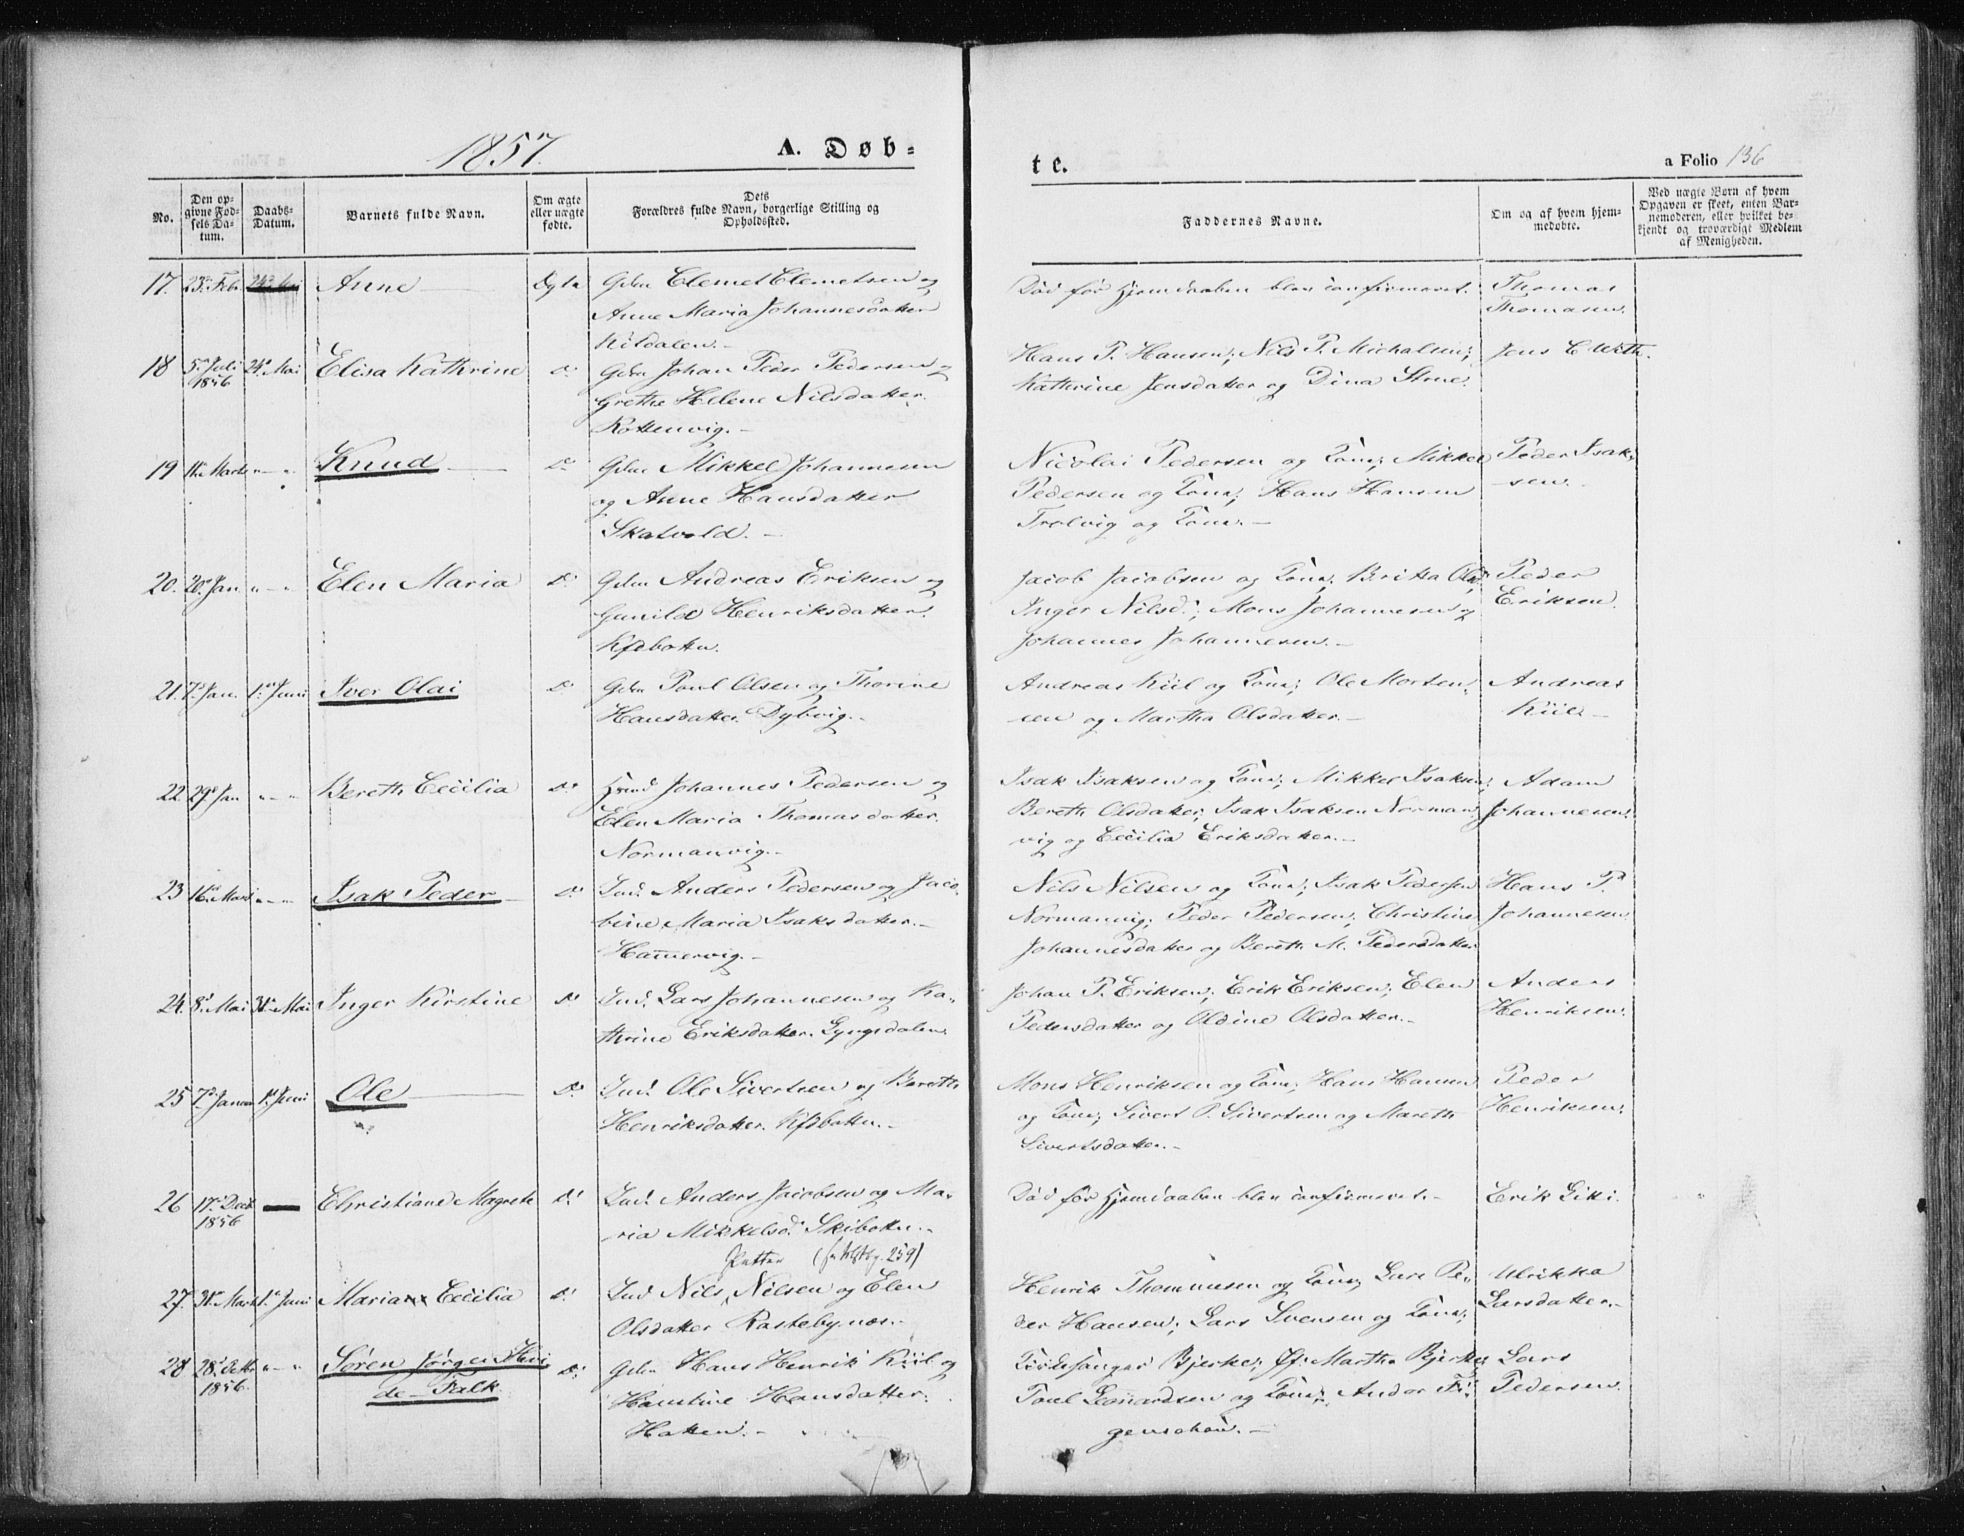 1857.
A. Døb-
te.
a Folio 136
No.
Den op-
givne Fød-
sels Da-
tum.
Daabs-
Datum.
Barnets fulde Navn.
Om ægte
eller uægte
fødte.
Dets
Forældres fulde Navn, borgerlige Stilling og
Opholdssted.
Faddernes Navne.
Om og af hvem hjem-
medøbte.
Ved uægte Børn af hvem
Opgaven er skeet, enten Bar-
nemoderen, eller hvilket be-
kjendt og troværdigt Medlem
af Menigheden.
17. 23de Feb. Anne Ægte Gdm Clemet Clemetsen og
Anne Maria Johannesdatter
Kildalen.
Död för Hjemdaaben blev confirmeret. Thomas
Thomasen.
18 5te Juli 24de Mai Elisa Kathrine Do Gdm Johan Peder Pedersen og
1856
Grethe Helene Nilsdatter.
Rottenvig.
Hans P. Hansen; Nils P. Michalsen; Jens C Weth.
Kathrine Jensdatter og Dina
19 Marts " - " Knud Do Gdm Mikkel Johannesen
og Anne Hansdatter
Skatvold.
Nicolai Pedersen og Kone; Mikkel Peder Isak-
Pedersen og Kone; Hans Hansen sen.
Trolvig og Kone.
20. 20de Jan " - " Elen Maria Do Gdm Andreas Eriksen og
Gunild Henriksdatter
Kfdbotten.
Jacob Jacobsen og Kone; Beritha Olsd; Peder
Inger Nilsd.; Mons Johannesen og Eriksen.
Johannes Johannesen.
21. 7de Jan. 1ste Juni Iver Olai Do Gdm Poul Olsen og Thorine
Hansdatter Dybvig.
Andreas Kiil og Kone; Ole Morten- Andreas
sen og Martha Olsdatter. Kiil
22 29de Jan " - " Bereth Cecilia Do Hmd Johannes Pedersen og
Elen Maria Thomasdatter.
Normanvig.
Isak Isaksen og Kone; Mikkel Isaksen; Adam
Bereth Olsdatter; Isak Isaksen Norman- Johannesen.
vig og Cecilia Eriksdatter.
23 16de Marts " - " Isak Peder Do Ind. Anders Pedersen og Jaco-
bine Maria Isaksdatter.
Hamervig.
Nils Nilsen og Kone; Isak Pedersen Hans P.
Normanvig; Peder Pedersen; Christine Johannesen.
Johannesdatter og Bereth M. Pedersdatter
24. 8de Mai 31te Mai Inger Kirstine Do Ind. Lars Johannesen og Ka-
thrine Eriksdatter. Lyngsdalen.
Johan P. Eriksen; Erik Eriksen; Elen Anders
Pedersdatter og Oldine Olsdatter. Henriksen.
25 7de Januar 1ste Juni Ole Do Ind. Ole Sivertsen og Bereth
Henriksdatter. Kfdbotten.
Mons Henriksen og Kone; Hans Hansen Peder
og Kone; Sivert P. Sivertsen og Mareth Henriksen.
Sivertsdatter.
26 17de Decb Christiane Magrete Do Ind. Anders Jacobsen og Ma-
1856
ria Mikkelsd. Skibotten.
Död för Hjemdaaben blev confirmeret. Erik Siki.
259)
27. 31te Marts 1ste Juni Maria Cecilia Do Ind. Nils Nilsen og Elen
Olsdatter Rastebynæs.
Henrik Thommesen og Kone; Lars Pe- Ulrikka
der Hansen; Lars Svensen og Kone; Larsdatter.
28 28de Octbr " - " Søren Jørgen
1856.
de Falk Do Gdm Hans Henrik Kiil og
Hanstine Hansdatter.
Hatten.
Kirkesanger Bjerke; Jf. Martha Bjerke; Lars
Poul Leonardsen og Kone; Andor Fi- Pedersen.
genschou.